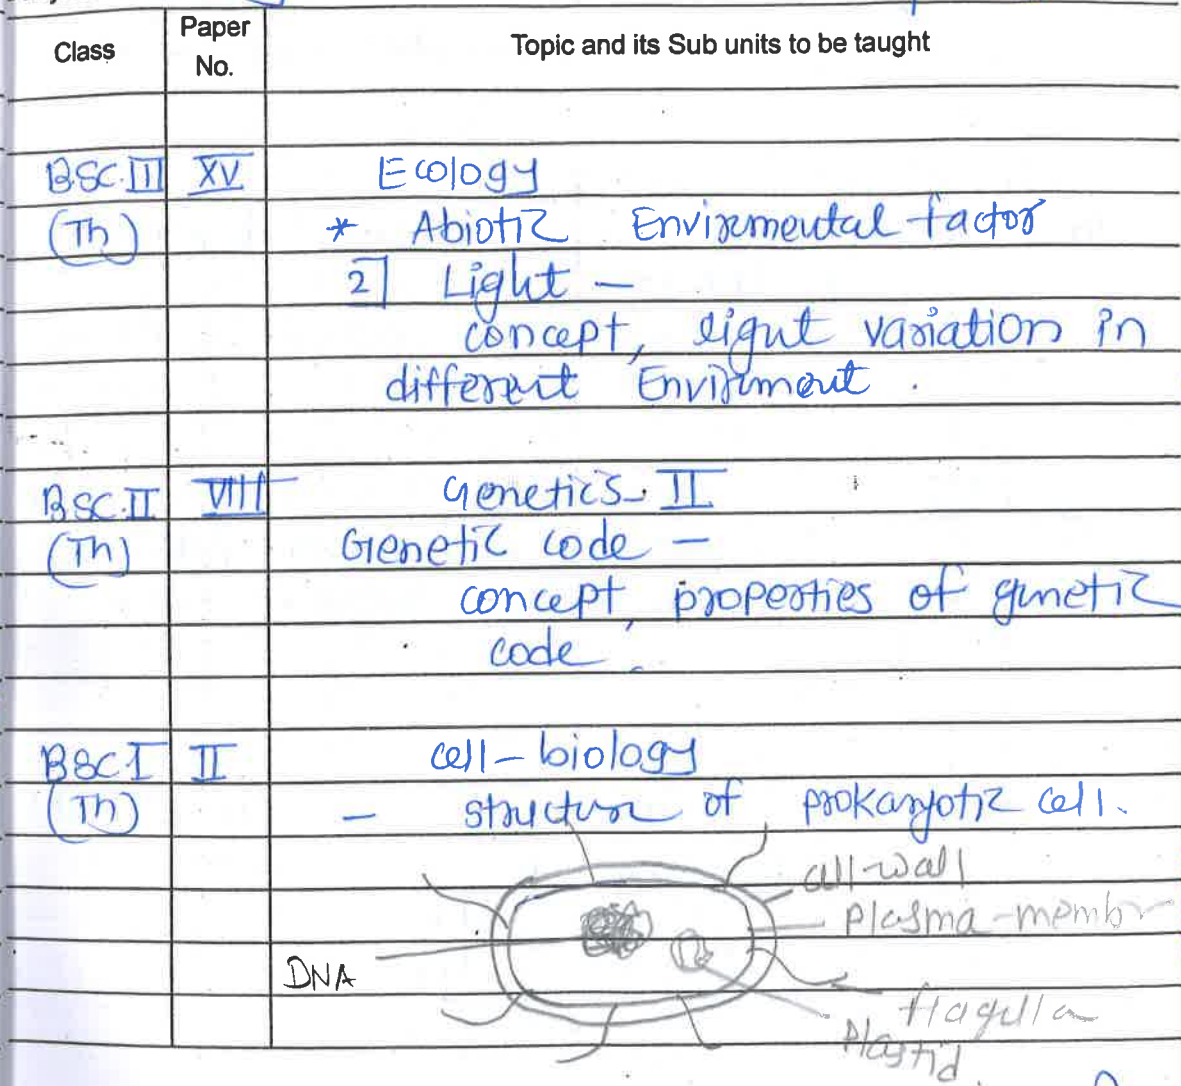 Class Paper No. Topic and its Sub units to be taught
BSC.III XV Ecology
(Th) * Abiotic Envirnmental factor
2] Light –
concept, light variation in
different Envirnment.
BSC.II VIII Genetics-II
(Th) Genetic code –
concept, properties of genetic
code.
BSC I II cell-biology
(Th) – structure of prokaryotic cell.
cell-wall
plasma-membr
DNA
flagella
plastid